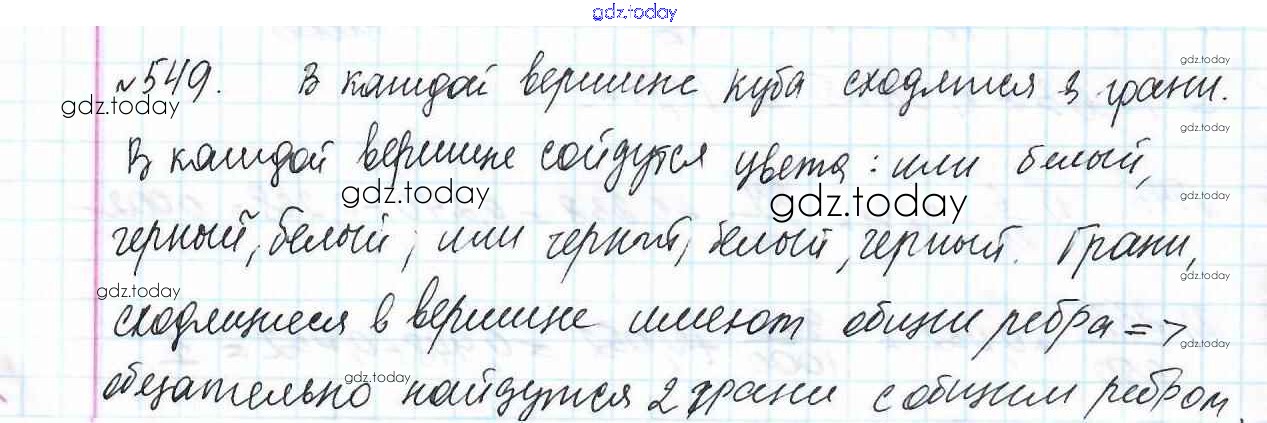 gdz.today
№549. В каждой вершине куба сходятся 3 грани.
gdz.today
gdz.today
gdz.today
В каждой вершине сойдутся цвета: или белый,
gdz.today
gdz.today
gdz.today
черный, белый, или черный, белый, черный. Грани,
gdz.today
gdz.today
сходящиеся в вершине имеют общие ребра =>
gdz.today
gdz.today
обязательно найдутся 2 грани с общим ребром,